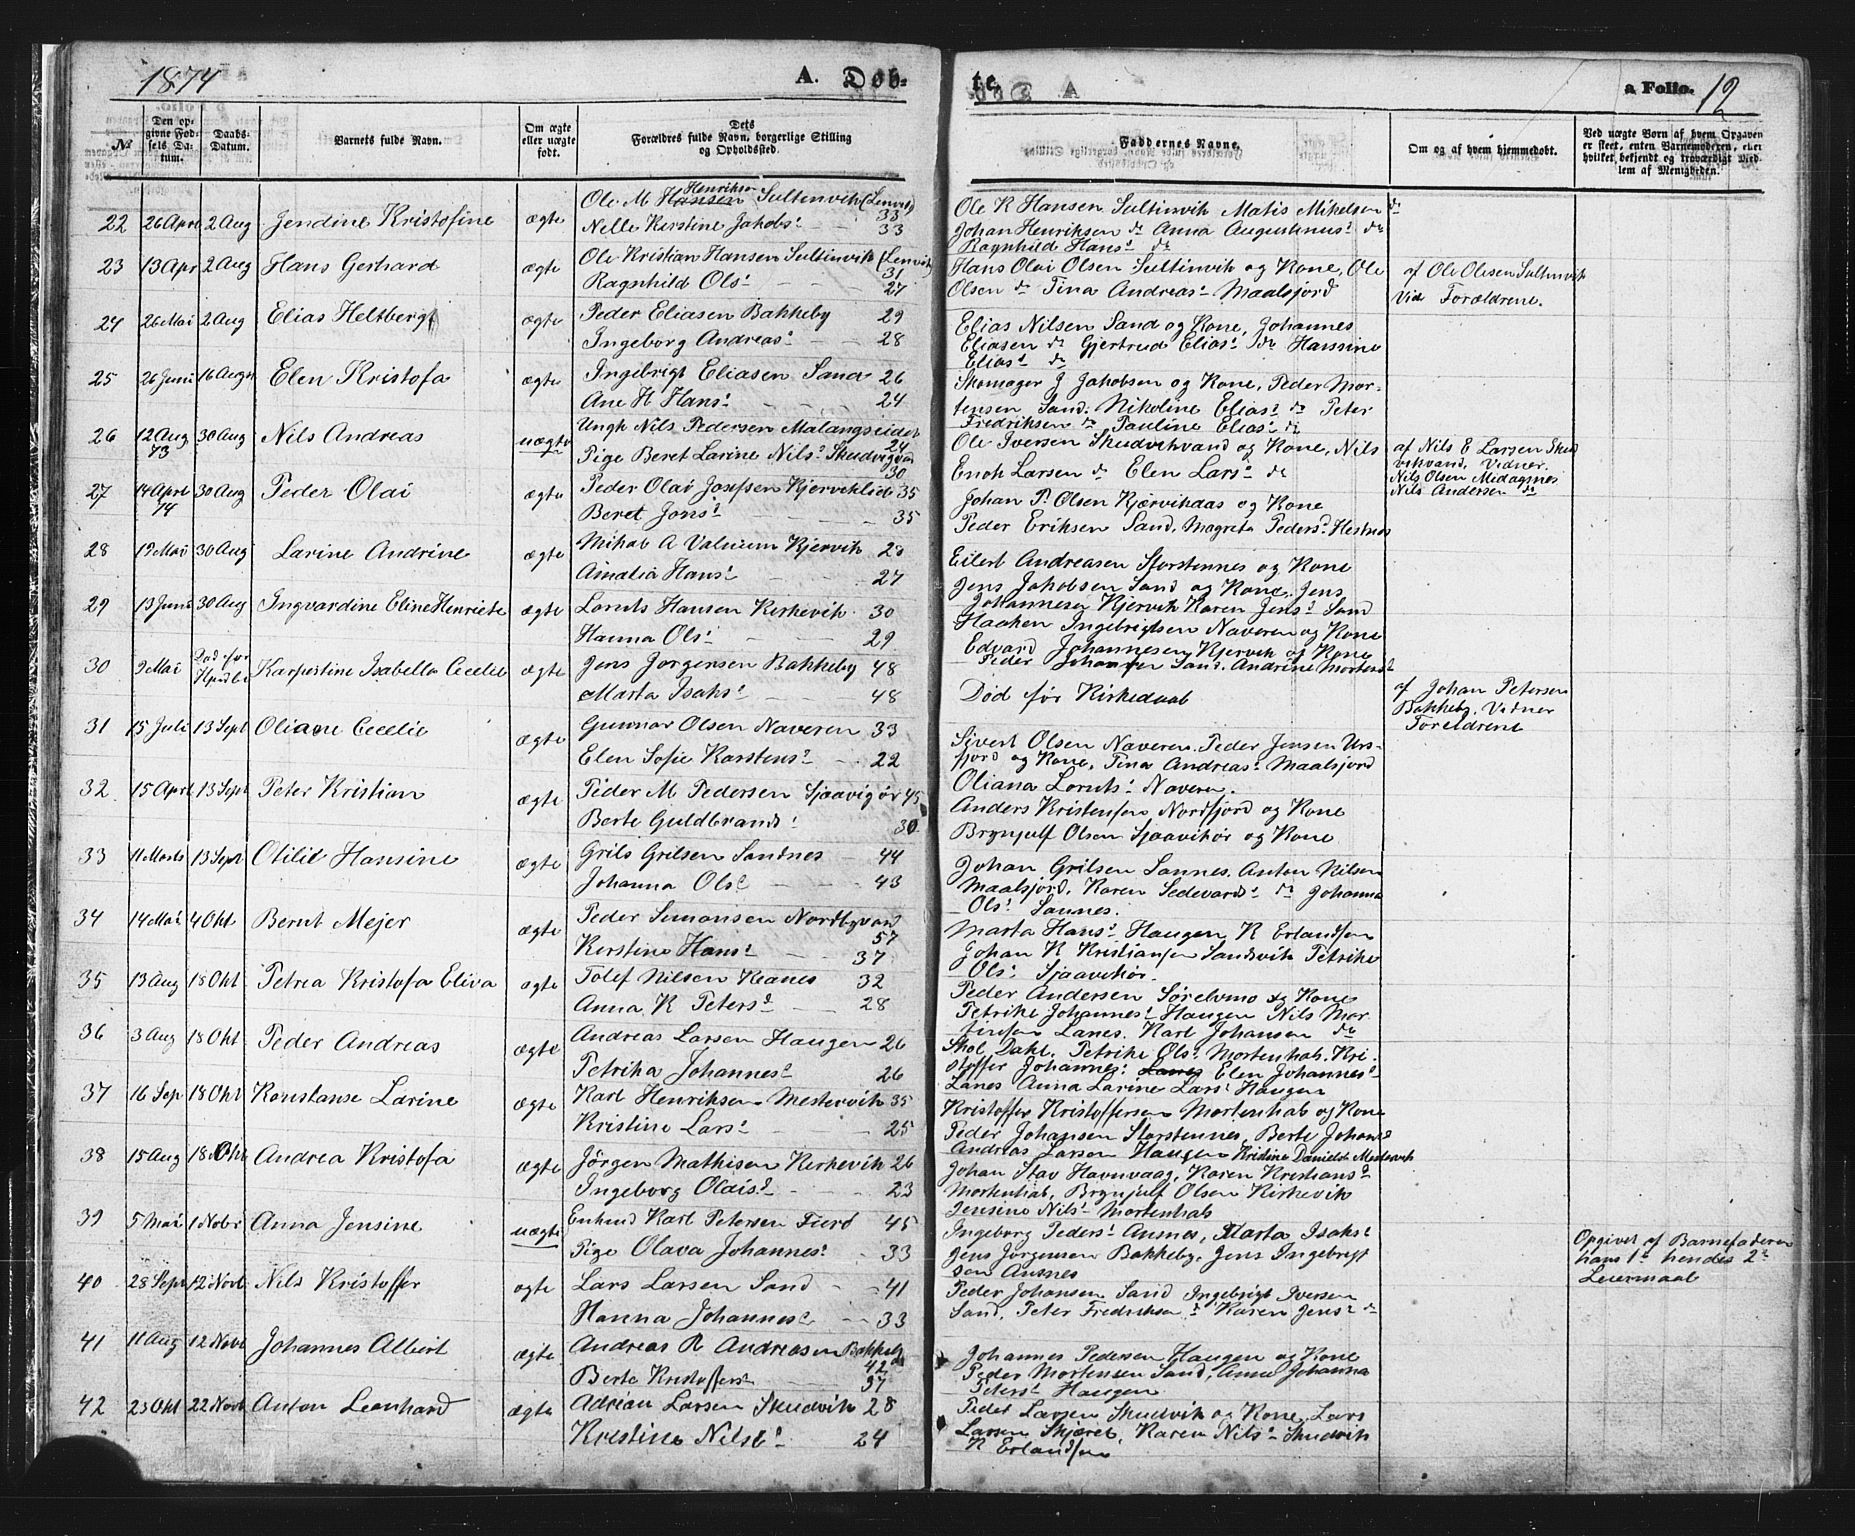 1874
A. Døb-
te.
a Folio. 12
No
Den op-
givne Fød-
sels Da-
tum.
Daabs-
Datum.
Barnets fulde Navn.
Om ægte
eller uægte
født.
Dets
Forældres fulde Navn, borgerlige Stilling
og Opholdssted.
Faddernes Navne.
Om og af hvem hjemmedøbt.
Ved uægte Børn af hvem Opgaven
er skeet, enten Barnemoderen, eller
hvilket bekjendt og troværdigt Med-
lem af Menigheden.
22 26 Apri 2 Aug Jendine Kristofine ægte
Ole M Hansen Henriksen Sultinvik (Lenvik) 33
Nelle Kerstine Jakobs: 33
Ole K Hansen Sultinvik Matis Mikelsen do
Johan Henriksen do Anna Augustinus: do
Ragnhild Hans: do
23 13 Apr 2 Aug Hans Gerhard ægte
Ole Kristian Hansen Sultinvik (Lenvik) 31
Ragnhild Ols: 27
Hans Olai Olsen Sultinvik og Kone, Ole
Olsen do Tina Andreas: Maalsjord
af Ole Olesen Sultinvik
Vid Forældrene.
24 26 Mai 2 Aug Elias Heltberg ægte
Peder Eliasen Bakkeby 29
Ingeborg Andreas: 28
Elias Nilsen Sand og Kone, Johannes
Eliasen do Gjertrud Elias: do Hansine
Elias: do
25 26 Juni 16 Augu Elen Kristofa ægte
Ingebrigt Eliasen Sand 26
Ane H Hans: 24
Skomager J Jakobsen og Kone, Peder Mor-
tensen Sand. Nikoline Elias: do Peter
Fredriksen do Pauline Elias: do
26 12 Aug 73 30 Aug Nils Andreas uægte
Ungk Nils Pedersen Malangseidet 24
Pige Beret Larine Nils: Skudvigvan 30
Ole Iversen Skudvikvand og Kone, Nils
Enok Larsen do Elen Lars: do
af Nils E Larsen Skud
vikvand, Vidner.
Nils Olsen Medagnes
Nils Andersen do
27 14 Apri 74 30 Aug Peder Olai ægte
Peder Olai Josefsen Kjerveklid 35
Beret Jons: 35
Johan P. Olsen Kjærvikdas og Kone
Peder Eriksen Sand, Magreta Peders: Hestnes
28 19 Mai 30 Aug Larine Andrine ægte
Mikal A Valnum Kjervik 28
Amalia Hans: 27
Eilert Andreasen Storstennes og Kone
Jens Jakobsen Sand og Kone, Jens
Johannesen Kjervik Karen Jens: Sand
29 13 Juni 30 Aug Ingvardine Eline Henriete ægte
Loruts Hansen Kirkevik 30
Hanna Ols: 29
Haaken Ingebrigtsen Naveren og Kone
Edvard Johannesen Kjervik og Kone
Peder Johansen Sand. Andrine Mortens:
30 9 Mai Død før Karpestine Isabella Cecelie ægte
Jens Jørgensen Bakkeby 48
Marta Isaks: 48
Død før Kirkedaab
af Johan Petersen
Bakkeby, Vidner
Foreldrene
31 15 Juli 13 Sept Oliane Cecelie ægte
Gunnar Olsen Naveren 33
Elen Sofie Karstens: 22
Sivert Olsen Naveren. Peder Jensen Urs-
fjord og Kone, Tina Andreas: Maalsjord
Oliana Loruts: Naveren.
32 15 April 13 Sept Peter Kristian ægte
Peder M Pedersen Sjaavigør 45
Berte Guldbrands: 30
Anders Kristensen Nordfjord og Kone
Brynjulf Olsen Sjaavikør og Kone
33 11 Marts 13 Sept Otilie Hansine ægte
Grils Grilsen Sandnes 44
Johanna Ols: 43
Johan Grilsen Sannes. Anton Nilsen
Maalsjord. Karen Sedevards: do Johanna
Ols: Sannes.
34 14 Mai 4 Okt Bernt Mejer ægte
Peder Simonsen Nordbyvand 57
Kerstine Hans: 37
Marta Hans: Haugen K Erlandsen
Johan K Kristiansen Sandvik Petrike
Ols: Sjaavikør.
35 13 Aug 18 Okt Petrea Kristofa Eliva ægte
Tolef Nilsen Keanes 32
Anna K Peters: 28
Peder Andersen Sørelvmo og Kone
Petrike Johannes: Haugen Nils Mor-
tinsen Lanes. Karl Johansen do
36 3 Aug 18 Okt Peder Andreas ægte
Andreas Larsen Haugen 26
Petrika Johannes: 26
Skol Dahl. Petrike Ols: Mortenhals. Kri-
stoffer Johannes: Lanes Elen Johannes:
Lanes Anna Larine Lars: Haugen
37 16 Sep 18 Okt Konstanse Larine ægte
Karl Henriksen Mestervik 35
Kristine Lars: 25
Kristoffer Kristoffersen Mortenhals og Kone
Peder Johansen Storstennes, Berte Johans
Andreas Larsen Haugen Kristine Daniels: Mestervik
38 15 Aug 18 Okt Andrea Kristofa ægte
Jørgen Mathisen Kirkevik 26
Ingeborg Olais: 23
Johan Stav Havnvaag, Karen Kristians:
Mortenhals, Brynjulf Olsen Kirkevik
Jensine Nils: Mortenhals
39 5 Mai 1 Nobr Anna Jensine uægte
Enkmd Karl Petersen Fierd 45
Pige Olava Johannes: 33
Ingeborg Peders: Ansnes, Marta Isaks:
Jens Jørgensen Bakkeby, Jens Ingebrigt
sen Ansnes
Opgivet af Barnefaderen
hans 1ste hendes 2det
Leiermaal
40 28 Sept 12 Novb Nils Kristoffer ægte
Lars Larsen Sand 41
Hanna Johannes: 33
Peder Johansen Sand Ingebrigt Iversen
Sand. Peter Fredriksen do Karen Jens: do
41 11 Aug 12 Novb Johannes Albert ægte
Andreas R Andreasen Bakkeby 42
Berte Kristoffers: 37
Johannes Pedersen Haugen og Kone
Peder Mortensen Sand, Anne Johanna
Peters: Haugen
42 23 Okt 22 Novb Anton Leonhard ægte
Adrian Larsen Skudvik 28
Kristine Nils: 24
Peder Larsen Skudvik og Kone, Lars
Larsen Skjæret, Karen Nils: Skudvik
K Erlandsen